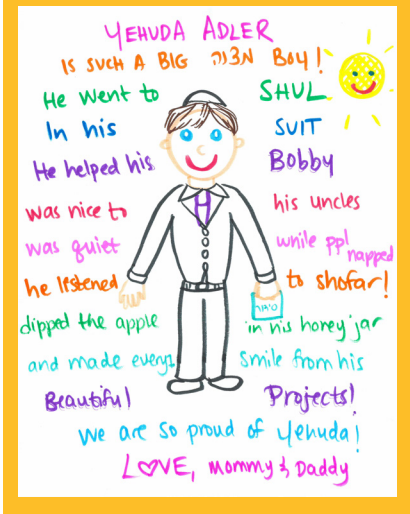 YEHUDA ADLER
IS SUCH A BIG מצוה BOY!
He went to SHUL
In his SUIT
He helped his Bobby
was nice to his uncles
was quiet while ppl napped
he listened to shofar!
dipped the apple in his honey jar
and made every1 smile from his
Beautiful Projects!
we are so proud of Yehuda!
LOVE, mommy & Daddy